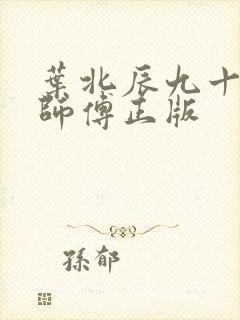 葉北辰九十
師傅正版
孫郁